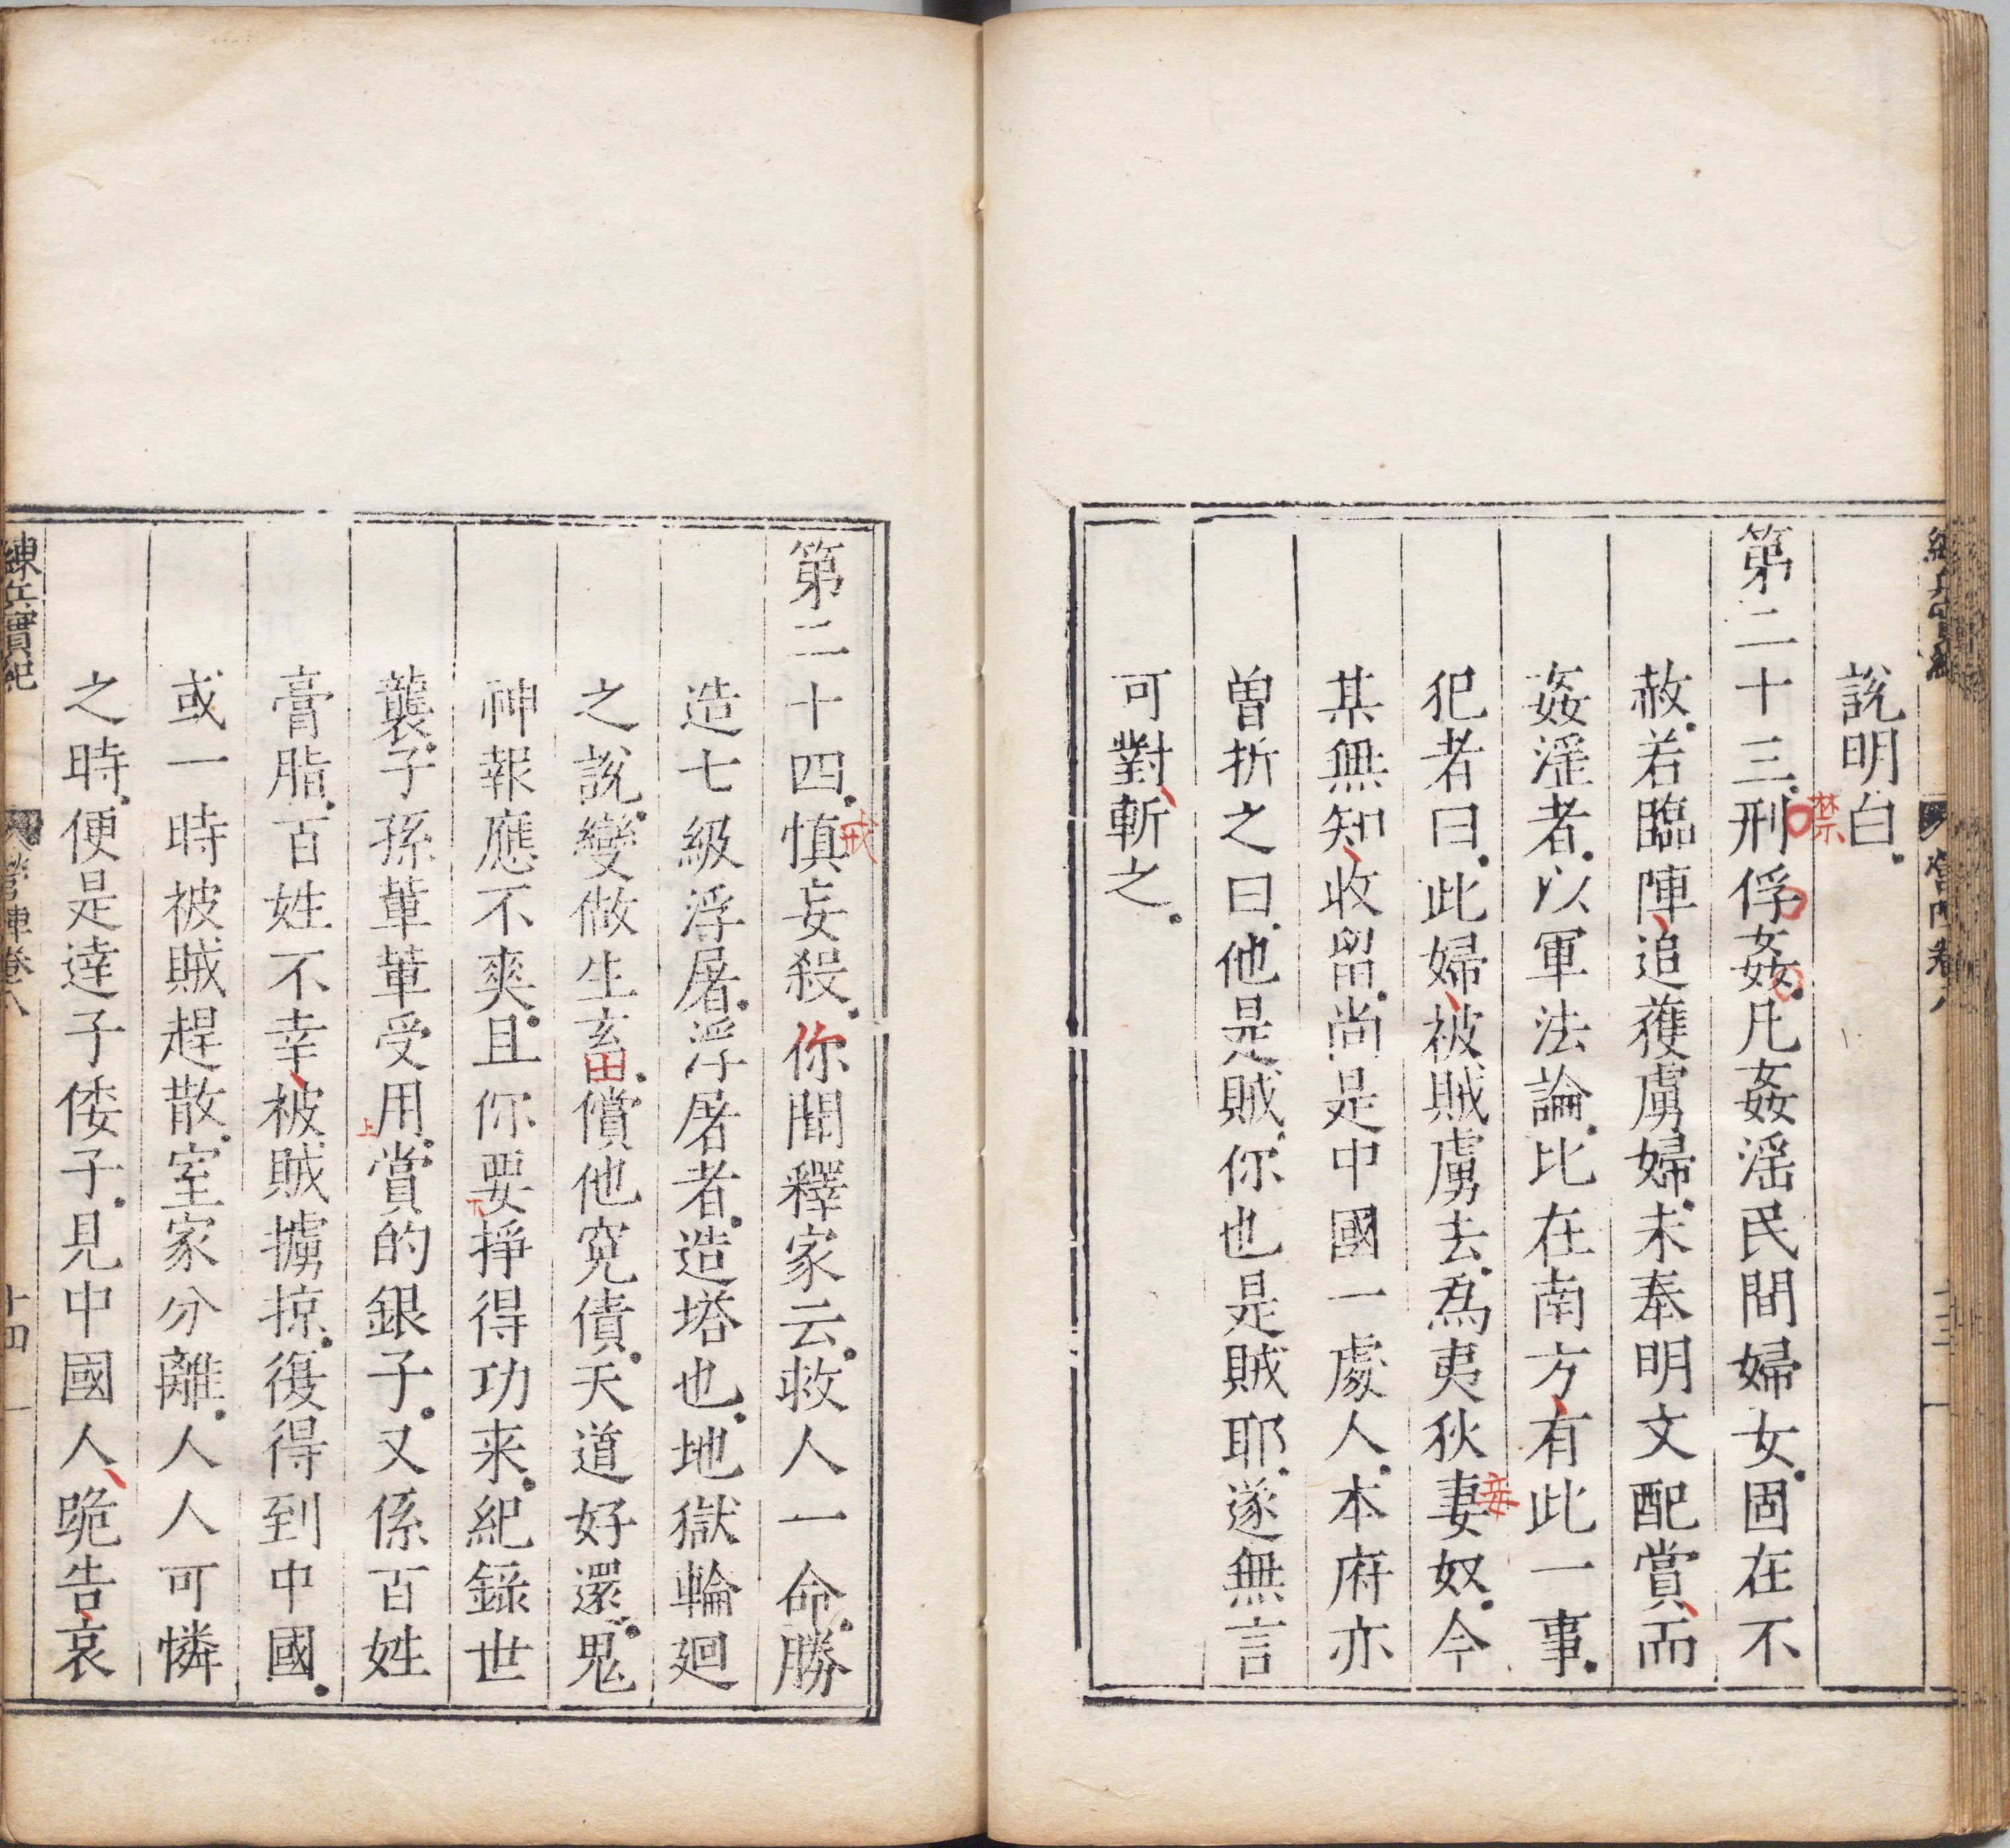 說明白
第二十三刑俘姦凡姦淫民間婦女固在不
禁
赦若臨陣追獲虜婦未奉明文配賞而
姦淫者以軍法論比在南方有此一事
犯者曰此婦被賊虜去爲夷狄妻奴今
妾
某無知收留尚是中國一處人本府亦
曾折之曰他是賊你也是賊耶遂無言
可對斬之
第二十四慎妄殺你聞釋家云救人一命勝
戒
造七級浮屠浮屠者造塔也地獄輪廻
之說變做生畜償他冤債天道好還鬼
神報應不爽且你要掙得功来紀錄世
下
襲子孫輩輩受用賞的銀子又係百姓
上
膏脂百姓不幸被賊擄掠復得到中國
或一時被賊趕散室家分離人人可憐
之時便是達子倭子見中國人跪告哀
練兵實紀 營陣卷八 十四